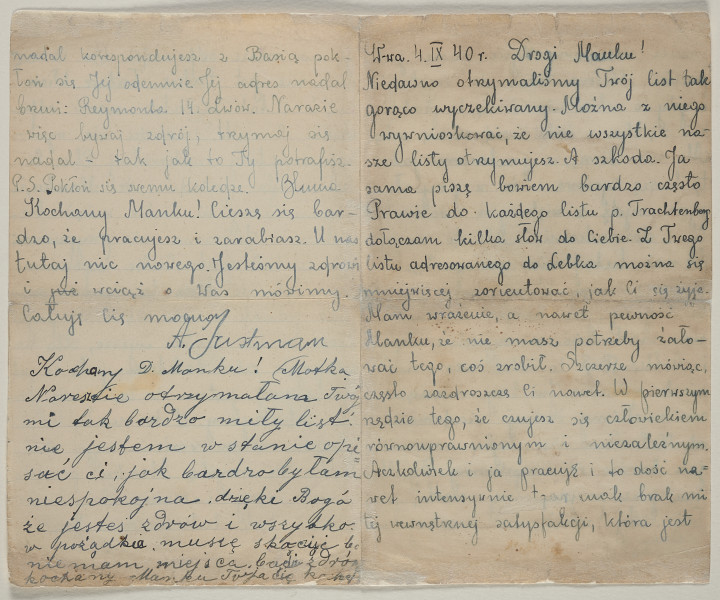 W-wa. 4.IX 40 r. Drogi Mańku!
Niedawno otrzymaliśmy Twój list tak
gorąco wyczekiwany. Można z niego
wywnioskować, że nie wszystkie na-
sze listy otrzymujesz. A szkoda. Ja
sama piszę bowiem bardzo często
Prawie do każdego listu p. Trachtenberg
dołączam kilka słów do Ciebie. Z Twego
listu adresowanego do Lebka można się
mniejwięcej zorientować, jak Ci się żyje.
Mam wrażenie, a nawet pewność
Mańku, że nie masz potrzeby żało-
wać tego, coś zrobił. Szczerze mówiąc,
często zazdroszczę Ci nawet. W pierwszym
rzędzie tego, że czujesz się człowiekiem
równouprawnionym i niezależnym.
Aczkolwiek i ja pracuję i to dość na-
wet intensywnie brak mi
tej wewnętrznej satysfakcji, która jest
nadal korespondujesz z Basią pok-
łoń się Jej odemnie Jej adres nadal
brzmi: Reymonta 14. Lwów. Narazie
więc bywaj zdrów, trzymaj się
nadal - tak jak to Ty potrafisz.
P.S. Pokłoń się swemu koledze. Bluma
Kochany Mańku! Cieszę się bar-
dzo, że pracujesz i zarabiasz. U nas
tutaj nic nowego. Jesteśmy zdrowi
i już wciąż o Was mówimy.
Całuję Cię mogucy
A. Sustmam
Kochany D. Manku! (Motka
Nareszcie otrzymałam Twój
mi tak bardzo miły list
nie jestem w stanie opi
sać ci, jak bardzo byłam
niespokojna. dzęki Bogó
że jesteś zdrów i wszysko
w pożądku. muszę skączyć b
nie mam miejsca. bądź zdróg
kochany Manku Twa cię